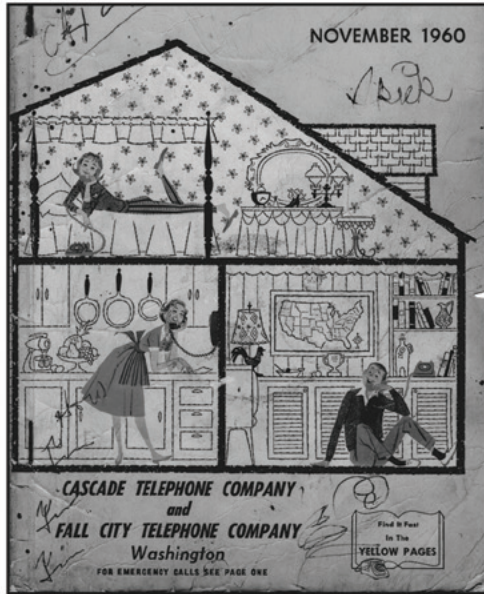 NOVEMBER 1960
CASCADE TELEPHONE COMPANY
and
FALL CITY TELEPHONE COMPANY
Washington
FOR EMERGENCY CALLS SEE PAGE ONE
Find It Fast
In The
YELLOW PAGES